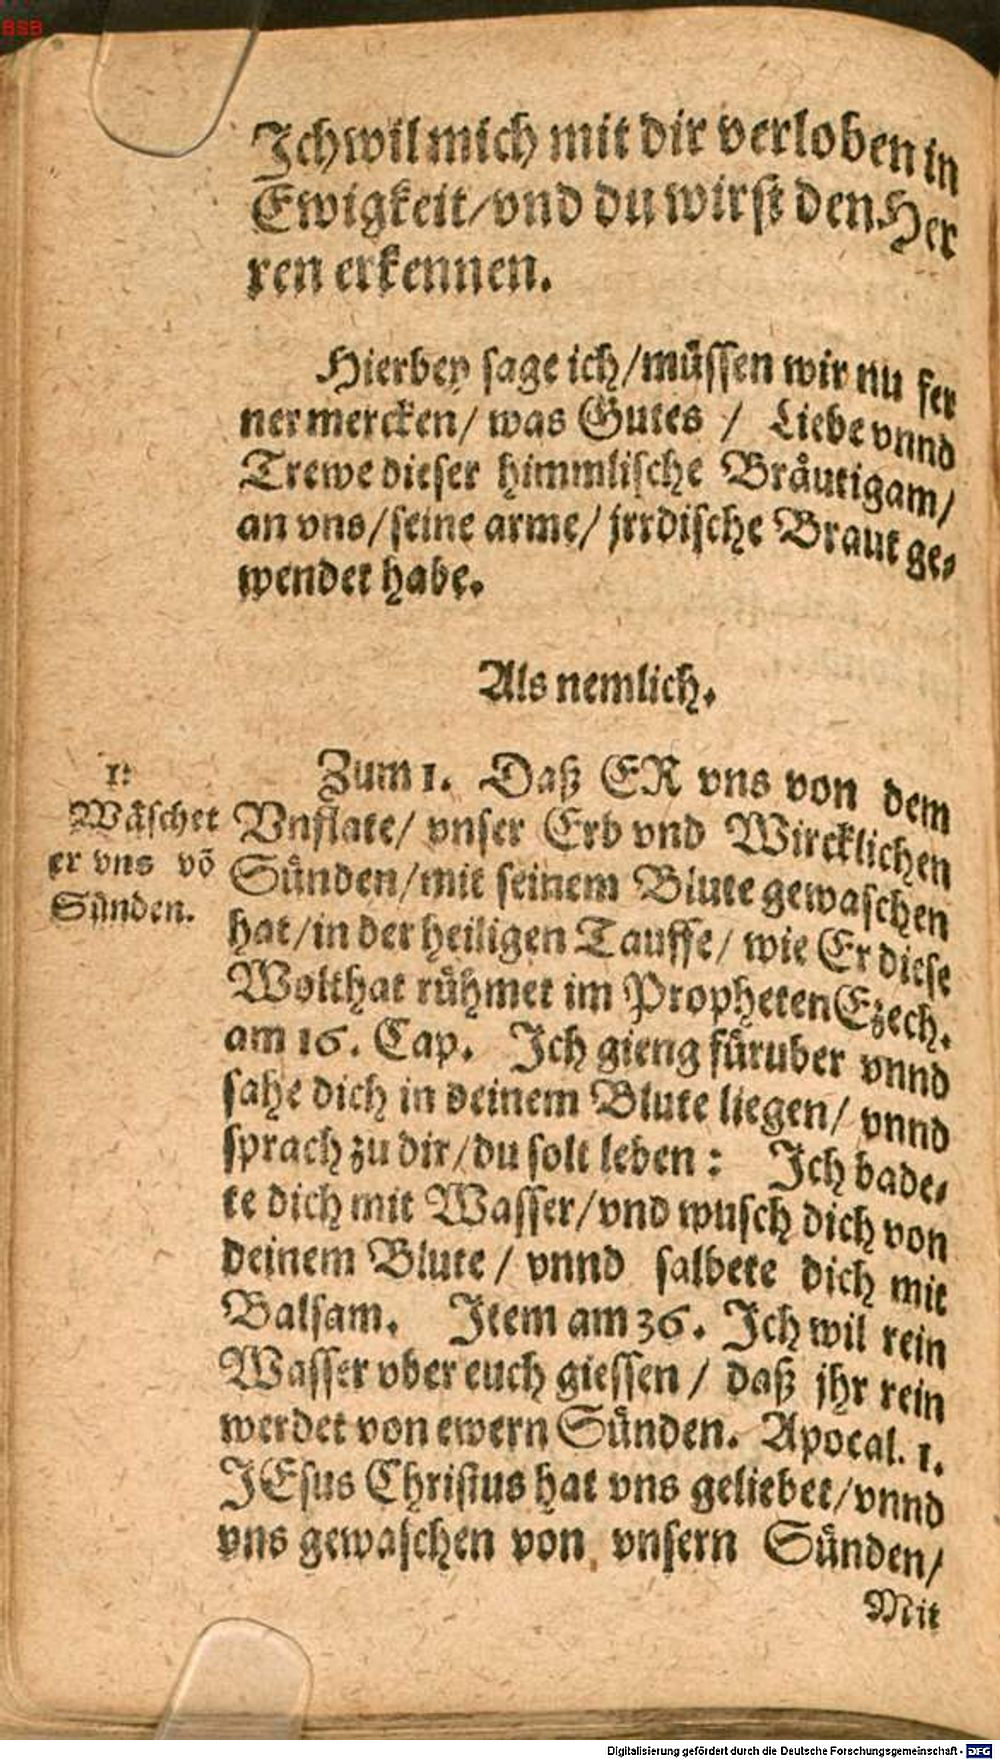 BSB
Ich wil mich mit dir verloben in
Ewigkeit/vnd du wirst den Her
ren erkennen.
Hierbey sage ich/müssen wir nu fer
ner mercken/ was Gutes / Liebe vnnd
Trewe dieser himmlische Bräutigam/
an vns/seine arme/ jrrdische Braut ge-
wendet habe.
Als nemlich.
1:
Wäschet
er vns võ
Sünden.
Zum 1. Daß ER vns von dem
Vnflate/ vnser Erb vnd Wircklichen
Sünden/mit seinem Blute gewaschen
hat/in der heiligen Tauffe/ wie Er diese
Wolthat rühmet im Propheten Ezech.
am 16. Cap. Ich gieng füruber vnnd
sahe dich in deinem Blute liegen/ vnnd
sprach zu dir/du solt leben: Ich bade-
te dich mit Wasser/vnd wusch dich von
deinem Blute / vnnd salbete dich mit
Balsam. Item am 36. Ich wil rein
Wasser vber euch giessen / daß jhr rein
werdet von ewern Sünden. Apocal. 1.
JEsus Christus hat vns geliebet/vnnd
vns gewaschen von vnsern Sünden/
Mit
Digitalisierung gefördert durch die Deutsche Forschungsgemeinschaft - DFG